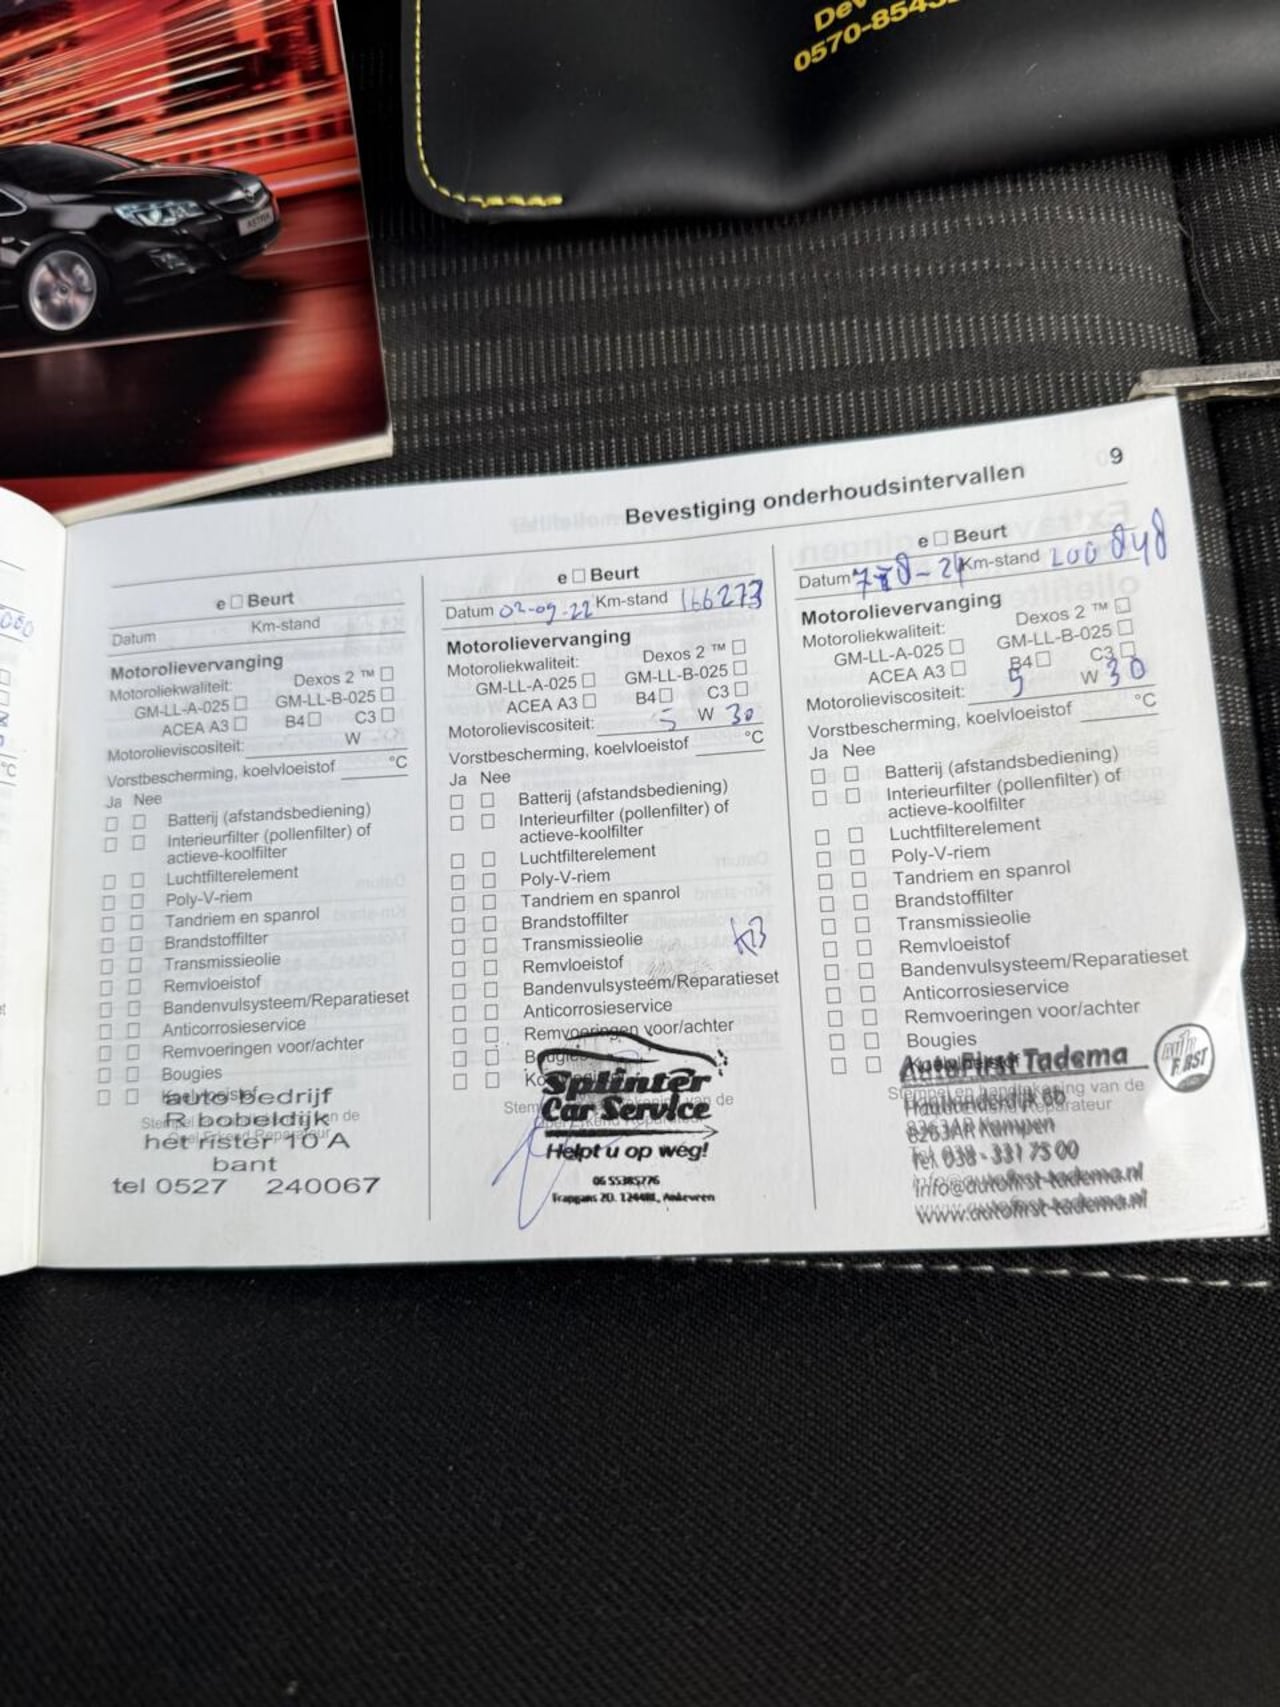 Dev
0570-8543
ASTRA
9
Bevestiging onderhoudsintervallen
e Beurt
Datum Km-stand
Motorolievervanging
Motoroliekwaliteit: Dexos 2 ™
GM-LL-A-025 GM-LL-B-025
ACEA A3 B4 C3
Motorolieviscositeit: W
Vorstbescherming, koelvloeistof °C
Ja Nee
Batterij (afstandsbediening)
Interieurfilter (pollenfilter) of
actieve-koolfilter
Luchtfilterelement
Poly-V-riem
Tandriem en spanrol
Brandstoffilter
Transmissieolie
Remvloeistof
Bandenvulsysteem/Reparatieset
Anticorrosieservice
Remvoeringen voor/achter
Bougies
auto bedrijf
R bobeldijk
het rister 10 A
bant
tel 0527 240067
e Beurt
Datum 02-09-22 Km-stand 166273
Motorolievervanging
Motoroliekwaliteit: Dexos 2 ™
GM-LL-A-025 GM-LL-B-025
ACEA A3 B4 C3
Motorolieviscositeit: 5 W 30
Vorstbescherming, koelvloeistof °C
Ja Nee
Batterij (afstandsbediening)
Interieurfilter (pollenfilter) of
actieve-koolfilter
Luchtfilterelement
Poly-V-riem
Tandriem en spanrol
Brandstoffilter
Transmissieolie
Remvloeistof
Bandenvulsysteem/Reparatieset
Anticorrosieservice
Remvoeringen voor/achter
Bougies
Splinter
Car Service
Helpt u op weg!
06 55385776
Trapgans 2D. 1244RL, Ankeveen
e Beurt
Datum Km-stand
Motorolievervanging
Motoroliekwaliteit: Dexos 2 ™
GM-LL-A-025 GM-LL-B-025
ACEA A3 B4 C3
Motorolieviscositeit: 5 W 30
Vorstbescherming, koelvloeistof °C
Ja Nee
Batterij (afstandsbediening)
Interieurfilter (pollenfilter) of
actieve-koolfilter
Luchtfilterelement
Poly-V-riem
Tandriem en spanrol
Brandstoffilter
Transmissieolie
Remvloeistof
Bandenvulsysteem/Reparatieset
Anticorrosieservice
Remvoeringen voor/achter
Bougies
AutoFirst Tadema
Stempel en handtekening van de
8263AR Kampen
Tel. 038 - 331 75 00
info@autofirst-tadema.nl
www.autofirst-tadema.nl